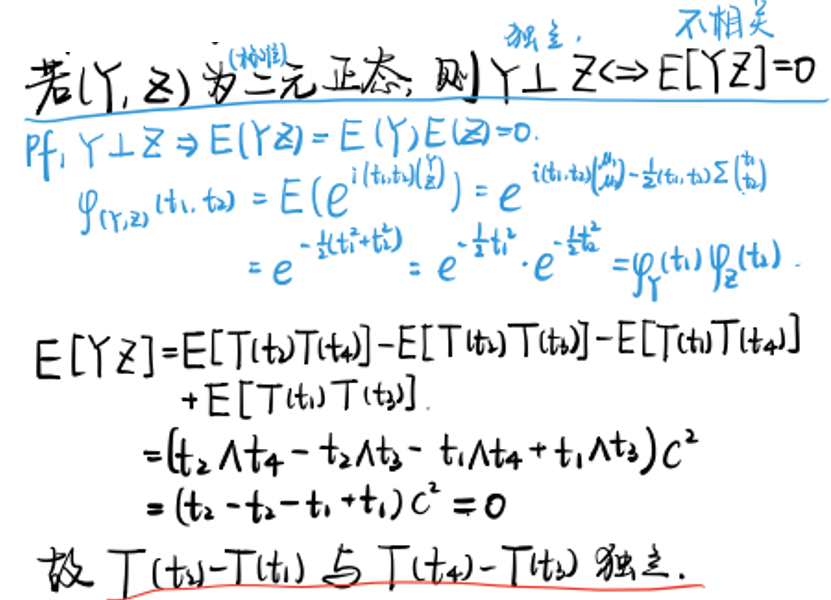 独立. 不相关
(标准)
若(Y, Z)为二元正态, 则 Y⊥Z⇔E[YZ]=0
Pf, Y⊥Z ⇒ E(YZ) = E(Y)E(Z)=0.
φ_(Y,Z)(t₁, t₂) = E(e^{i(t₁,t₂)(Y Z)}) = e^{i(t₁,t₂)(μ₁ μ₂) - ½(t₁,t₂)Σ(t₁ t₂)}
= e^{-½(t₁²+t₂²)} = e^{-½t₁²}·e^{-½t₂²} = φ_Y(t₁)φ_Z(t₂).
E[YZ]=E[T(t₂)T(t₄)]-E[T(t₂)T(t₃)]-E[T(t₁)T(t₄)]
+E[T(t₁)T(t₃)].
=(t₂∧t₄ - t₂∧t₃ - t₁∧t₄ + t₁∧t₃)C²
= (t₂ - t₂ - t₁ + t₁)C² = 0
故 T(t₂)-T(t₁) 与 T(t₄)-T(t₃) 独立.